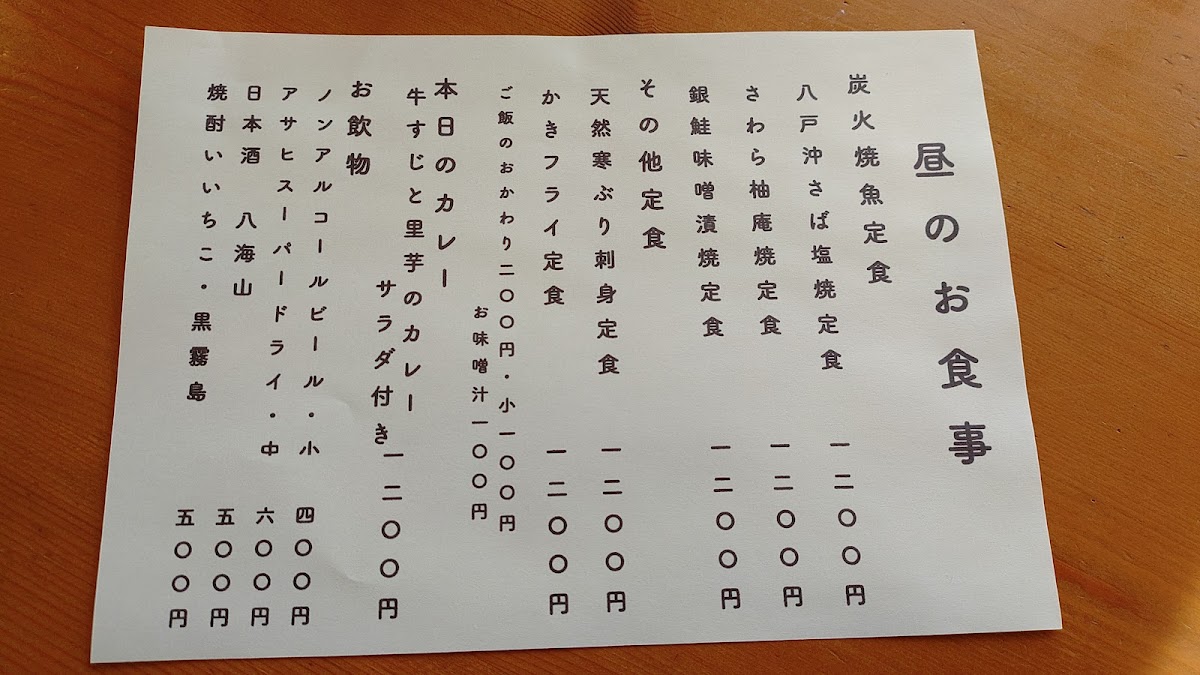 昼のお食事
炭火焼魚定食
八戸沖さば塩焼定食 一二〇〇円
さわら柚庵焼定食 一二〇〇円
銀鮭味噌漬焼定食 一二〇〇円
その他定食
天然寒ぶり刺身定食 一二〇〇円
かきフライ定食 一二〇〇円
ご飯のおかわり二〇〇円・小一〇〇円
お味噌汁一〇〇円
本日のカレー
牛すじと里芋のカレー
サラダ付き 一二〇〇円
お飲物
ノンアルコールビール・小 四〇〇円
アサヒスーパードライ・中 六〇〇円
日本酒 八海山 五〇〇円
焼酎いいちこ・黒霧島 五〇〇円